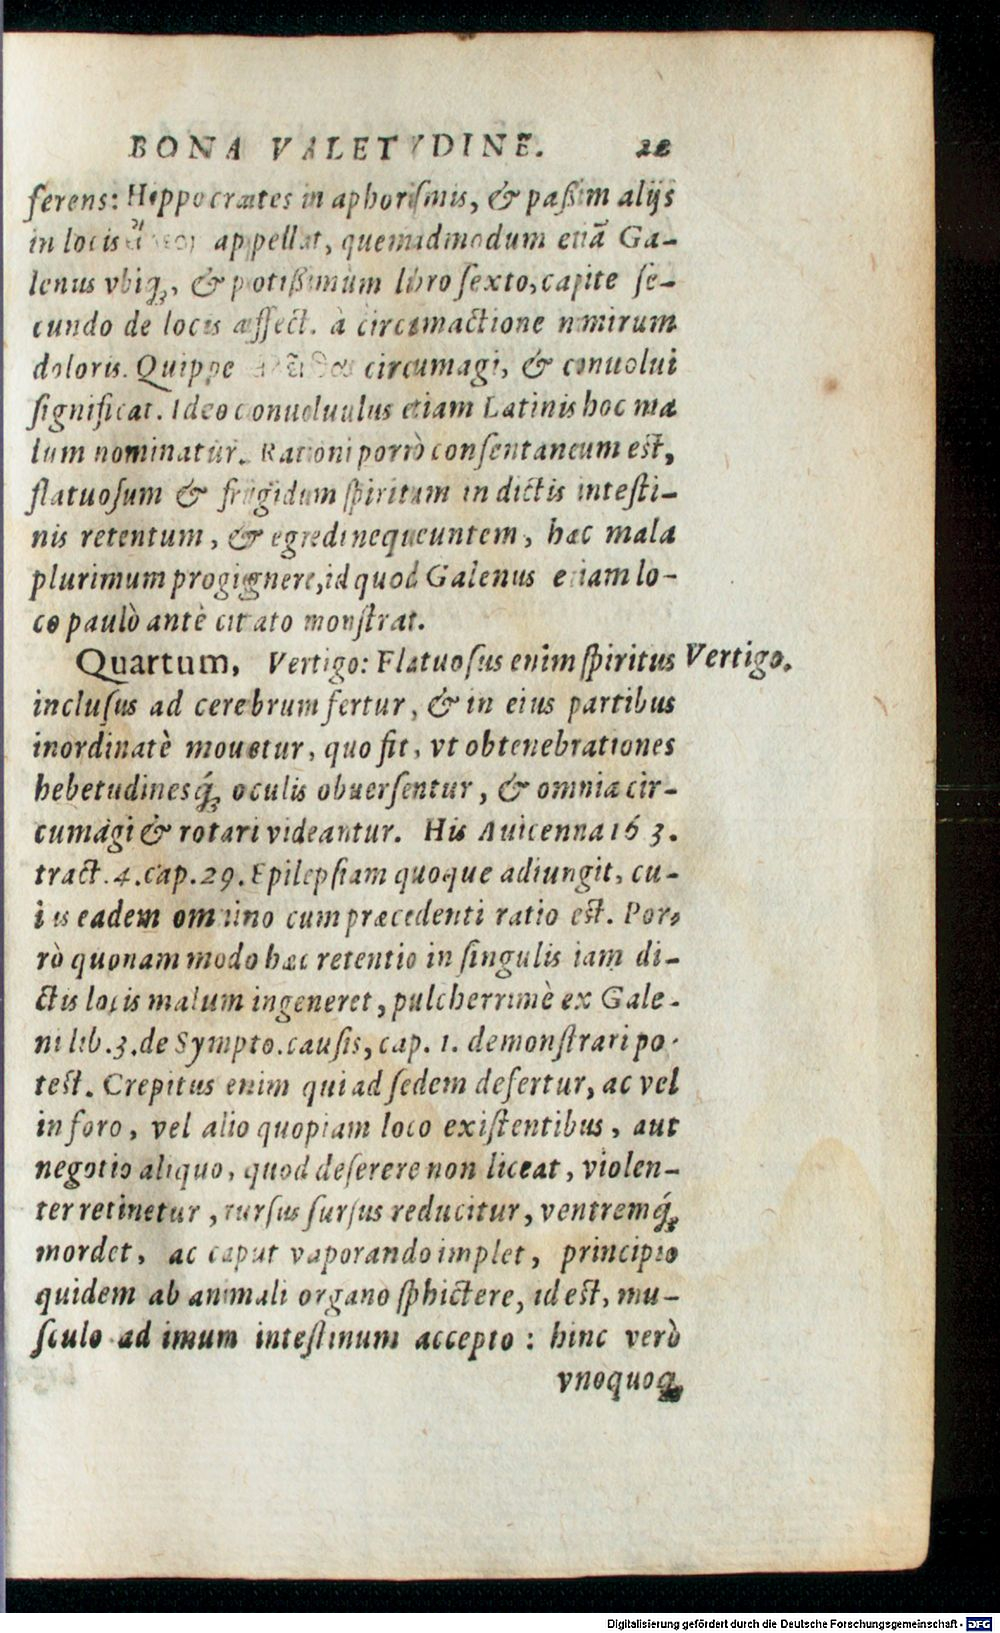 BONA VALETVDINE.
ferens: Hippocrates in aphorismis, & paßim alijs
in locis appellat, quemadmodum etiã Ga-
lenus vbiq;, & potißimum libro sexto, capite se-
cundo de locis affect. à circumactione nimirum
doloris. Quippe circumagi, & conuolui
significat. Ideo conuoluulus etiam Latinis hoc ma
lum nominatur. Rationi porrò consentaneum est,
flatuosum & frigidum spiritum in dictis intesti-
nis retentum, & egredi nequeuntem, hæc mala
plurimum progignere, id quod Galenus etiam lo-
co paulò antè citato monstrat.
Quartum, Vertigo: Flatuosus enim spiritus
Vertigo.
inclusus ad cerebrum fertur, & in eius partibus
inordinatè mouetur, quo fit, vt obtenebrationes
hebetudinesq́; oculis obuersentur, & omnia cir-
cumagi & rotari videantur. His Auicenna 16 3.
tract. 4. cap. 29. Epilepsiam quoque adiungit, cu-
ius eadem omnino cum præcedenti ratio est. Por-
rò quonam modo hæc retentio in singulis iam di-
ctis locis malum ingeneret, pulcherrimè ex Gale-
ni lib. 3. de Sympto. causis, cap. 1. demonstrari po-
test. Crepitus enim qui ad sedem defertur, ac vel
in foro, vel alio quopiam loco existentibus, aut
negotio aliquo, quod deserere non liceat, violen-
ter retinetur, rursus sursus reducitur, ventremq́;
mordet, ac caput vaporando implet, principio
quidem ab animali organo sphictere, id est, mu-
sculo ad imum intestinum accepto: hinc verò
vnoquoq;
Digitalisierung gefördert durch die Deutsche Forschungsgemeinschaft - DFG